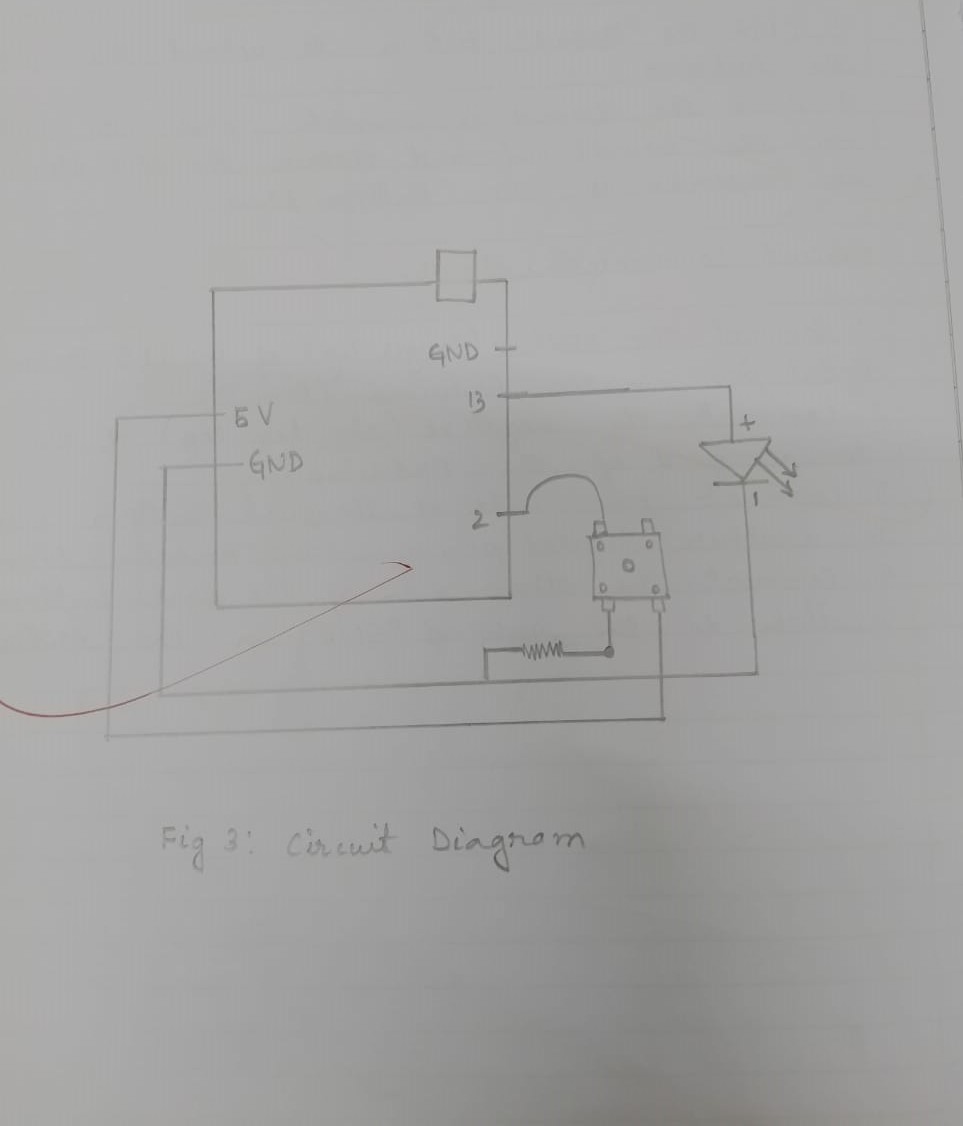 GND
13
5 V
GND
+
-
2
Fig 3: Circuit Diagram